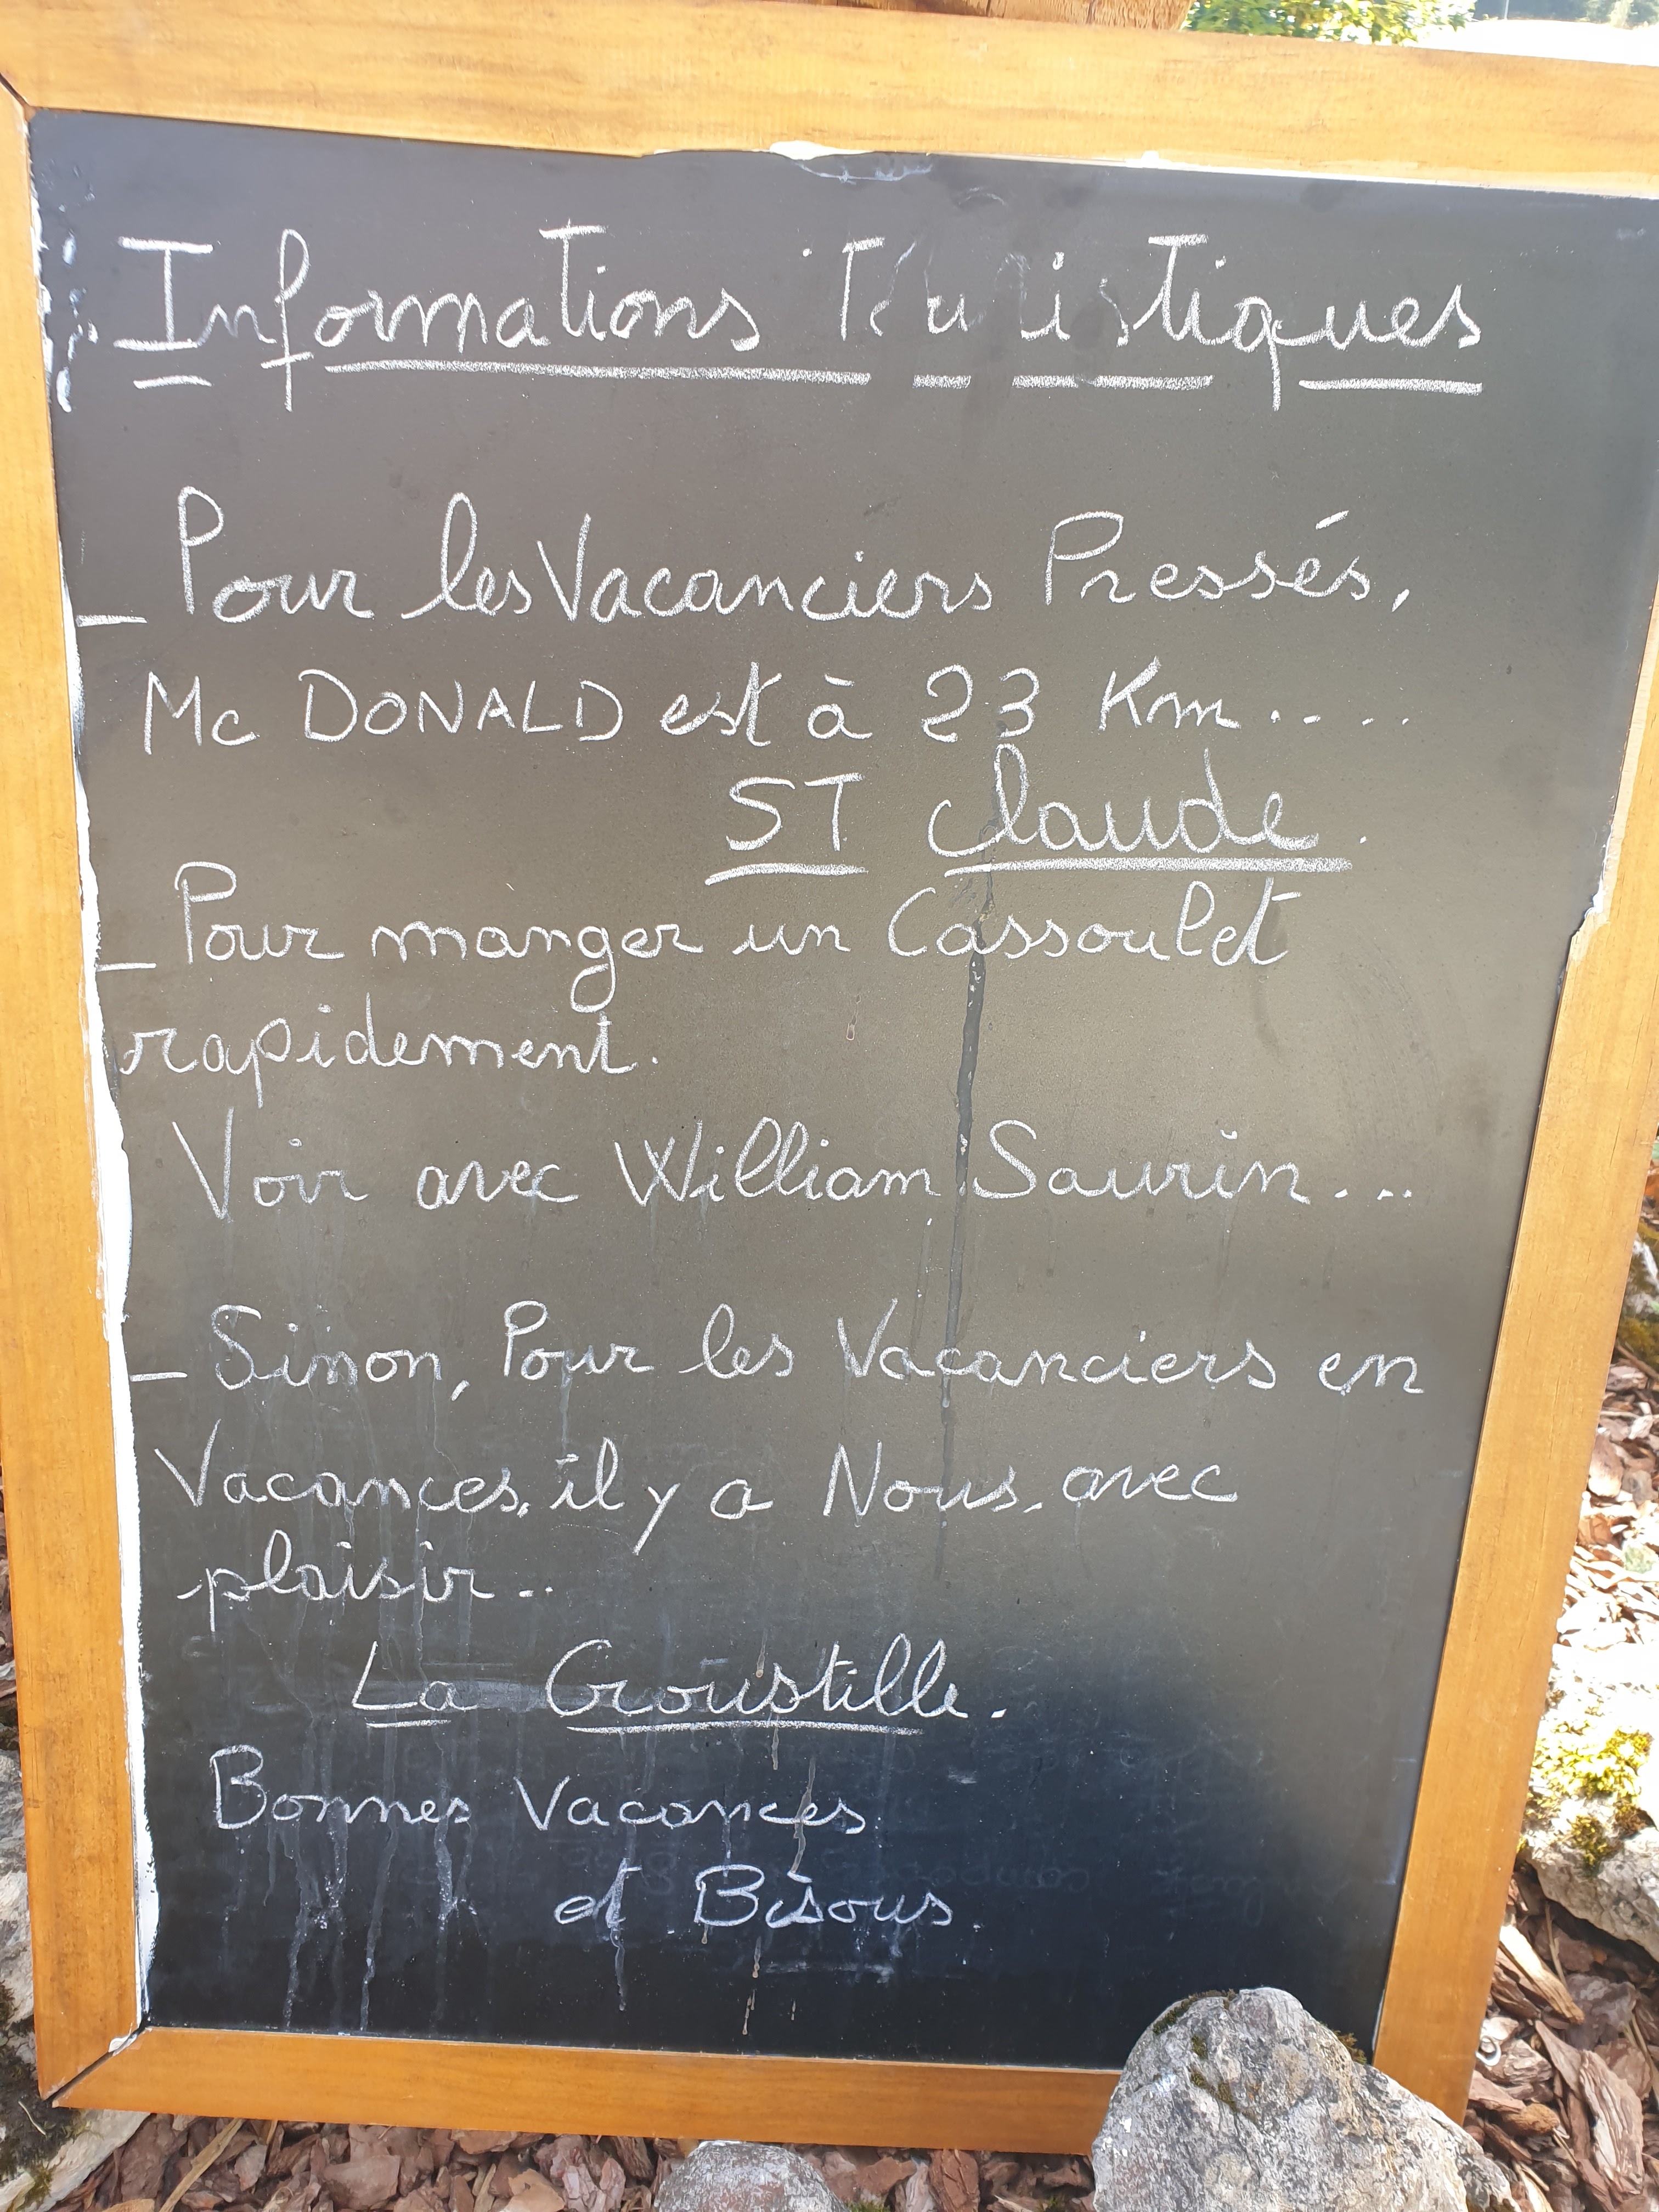 Informations Touristiques
_ Pour les Vacanciers Pressés,
Mc DONALD est à 23 Km....
ST Claude.
_ Pour manger un Cassoulet
rapidement.
Voir avec William Saurin...
_ Sinon, Pour les Vacanciers en
Vacances, il y a Nous, avec
plaisir..
La Croustille.
Bonnes Vacances
et Bisous.